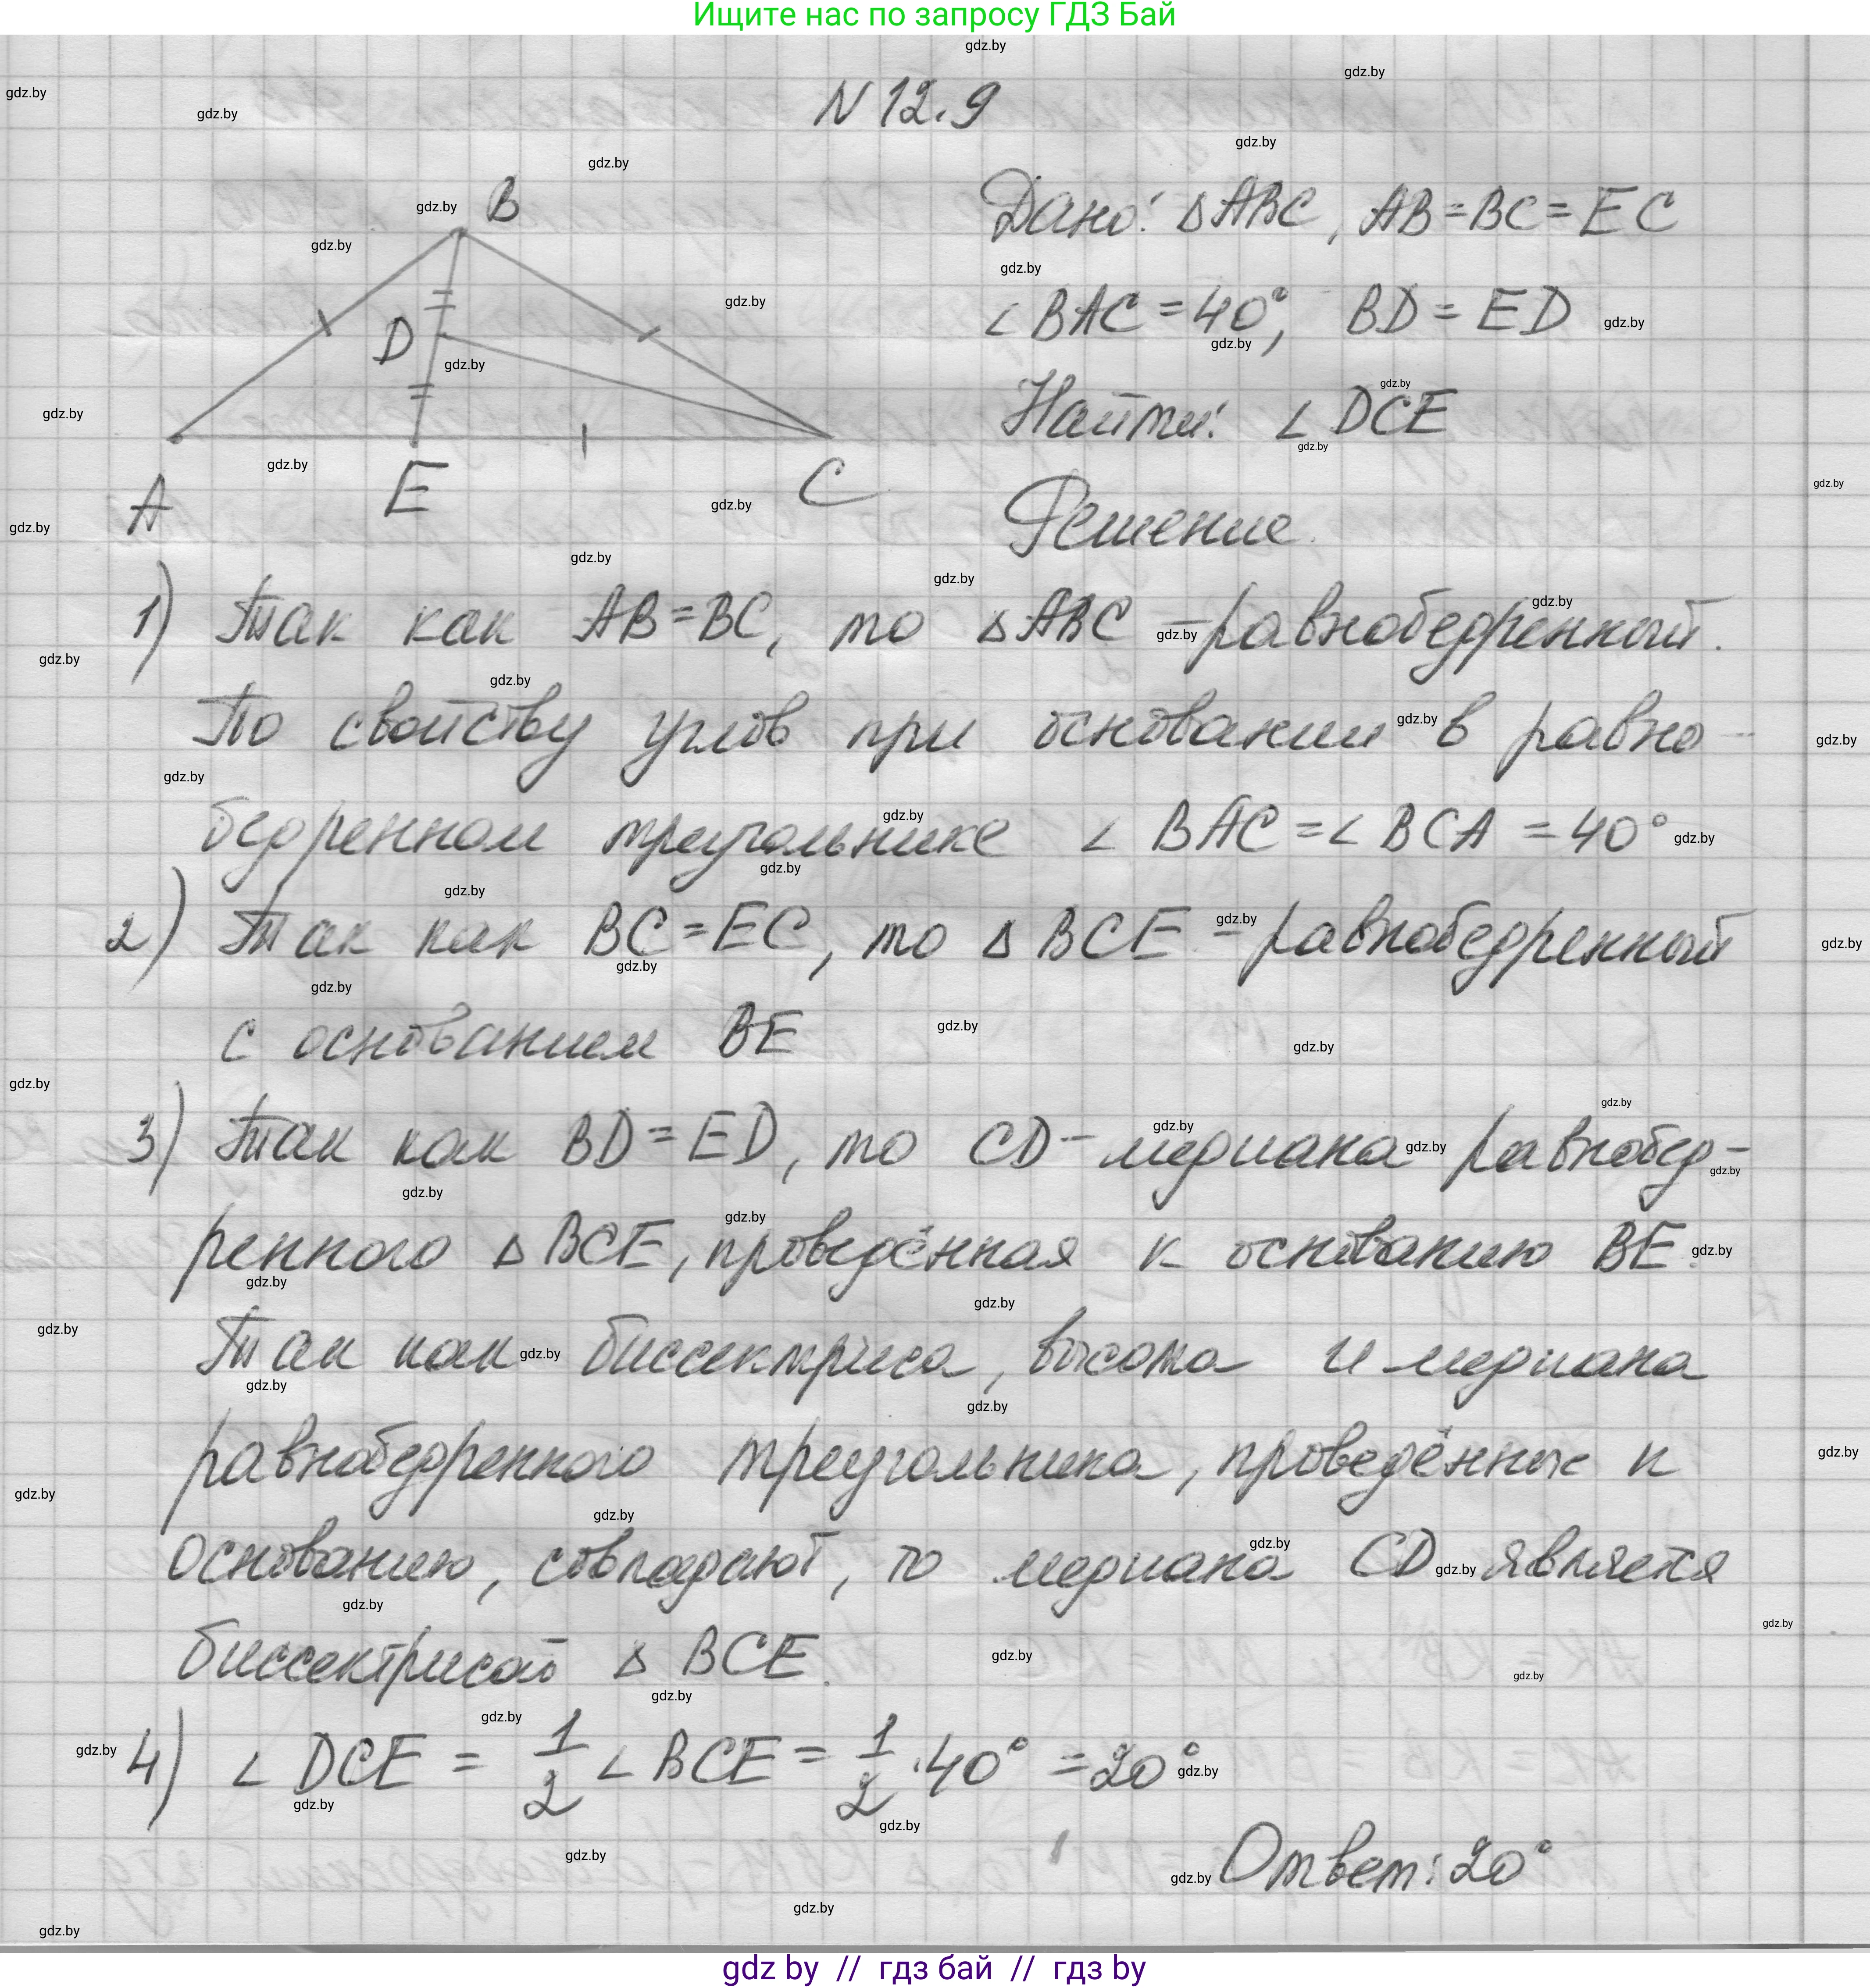 Ищите нас по запросу ГДЗ Бай
N 12.9
B
D
A
E
C
Дано: ΔABC, AB=BC=EC
∠BAC=40°, BD=ED
Найти: ∠DCE
Решение.
1) Так как AB=BC, то ΔABC - равнобедренный.
По свойству углов при основании в равно-
бедренном треугольнике ∠BAC=∠BCA=40°
2) Так как BC=EC, то ΔBCE - равнобедренный
с основанием BE
3) Так как BD=ED, то CD - медиана равнобед-
ренного ΔBCE, проведённая к основанию BE.
Так как биссектриса, высота и медиана
равнобедренного треугольника, проведённые к
основанию, совпадают, то медиана CD является
биссектрисой ΔBCE.
4) ∠DCE = 1/2 ∠BCE = 1/2 · 40° = 20°
Ответ: 20°
gdz by // гдз бай // гдз by